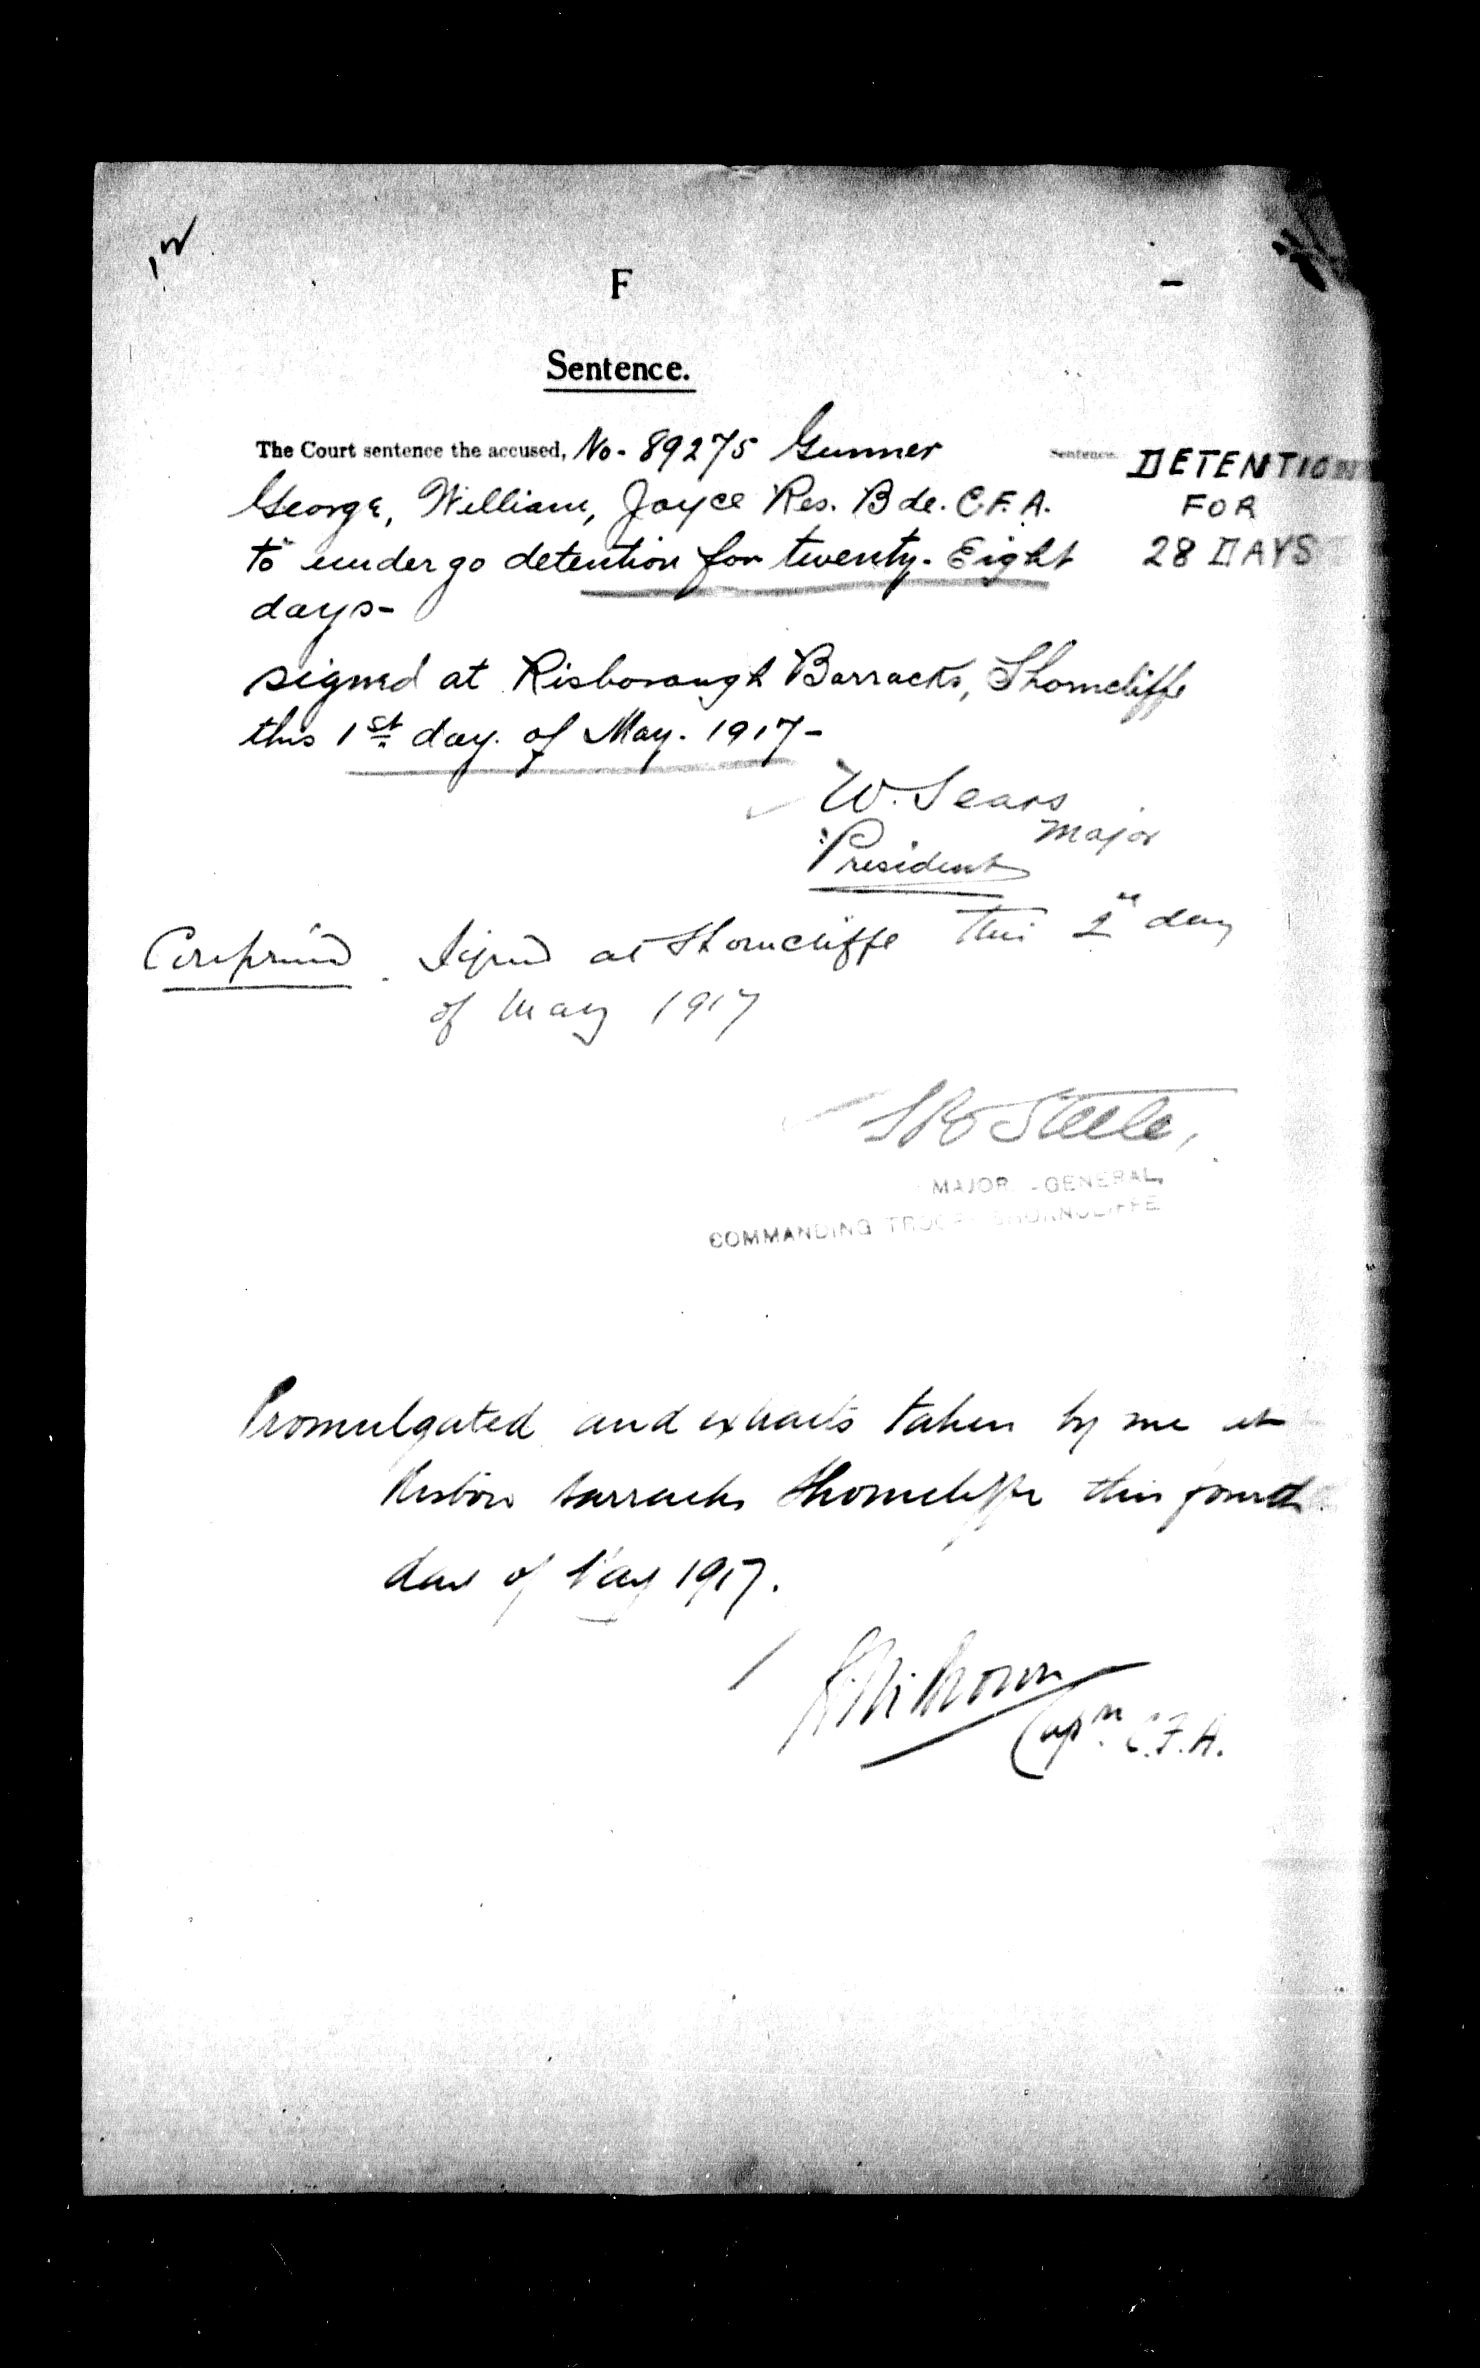 F
Sentence.
The Court sentence the accused, No- 89275 Gunner
George, William, Joyce Res. Bde. C.F.A.
to undergo detention for twenty-Eight
days-
Sentence. DETENTION
FOR
28 DAYS
signed at Risborough Barracks, Shorncliffe
this 1st day of May. 1917-
W. Sears
Major
President
Confirmed. Signed at Shorncliffe this 2nd day
of May 1917
S B Steele,
MAJOR-GENERAL,
COMMANDING TROOPS SHORNCLIFFE
Promulgated and extracts taken by me at
Risboro barracks Shorncliffe this fourth
day of May 1917.
Brown
Capn. C.F.A.